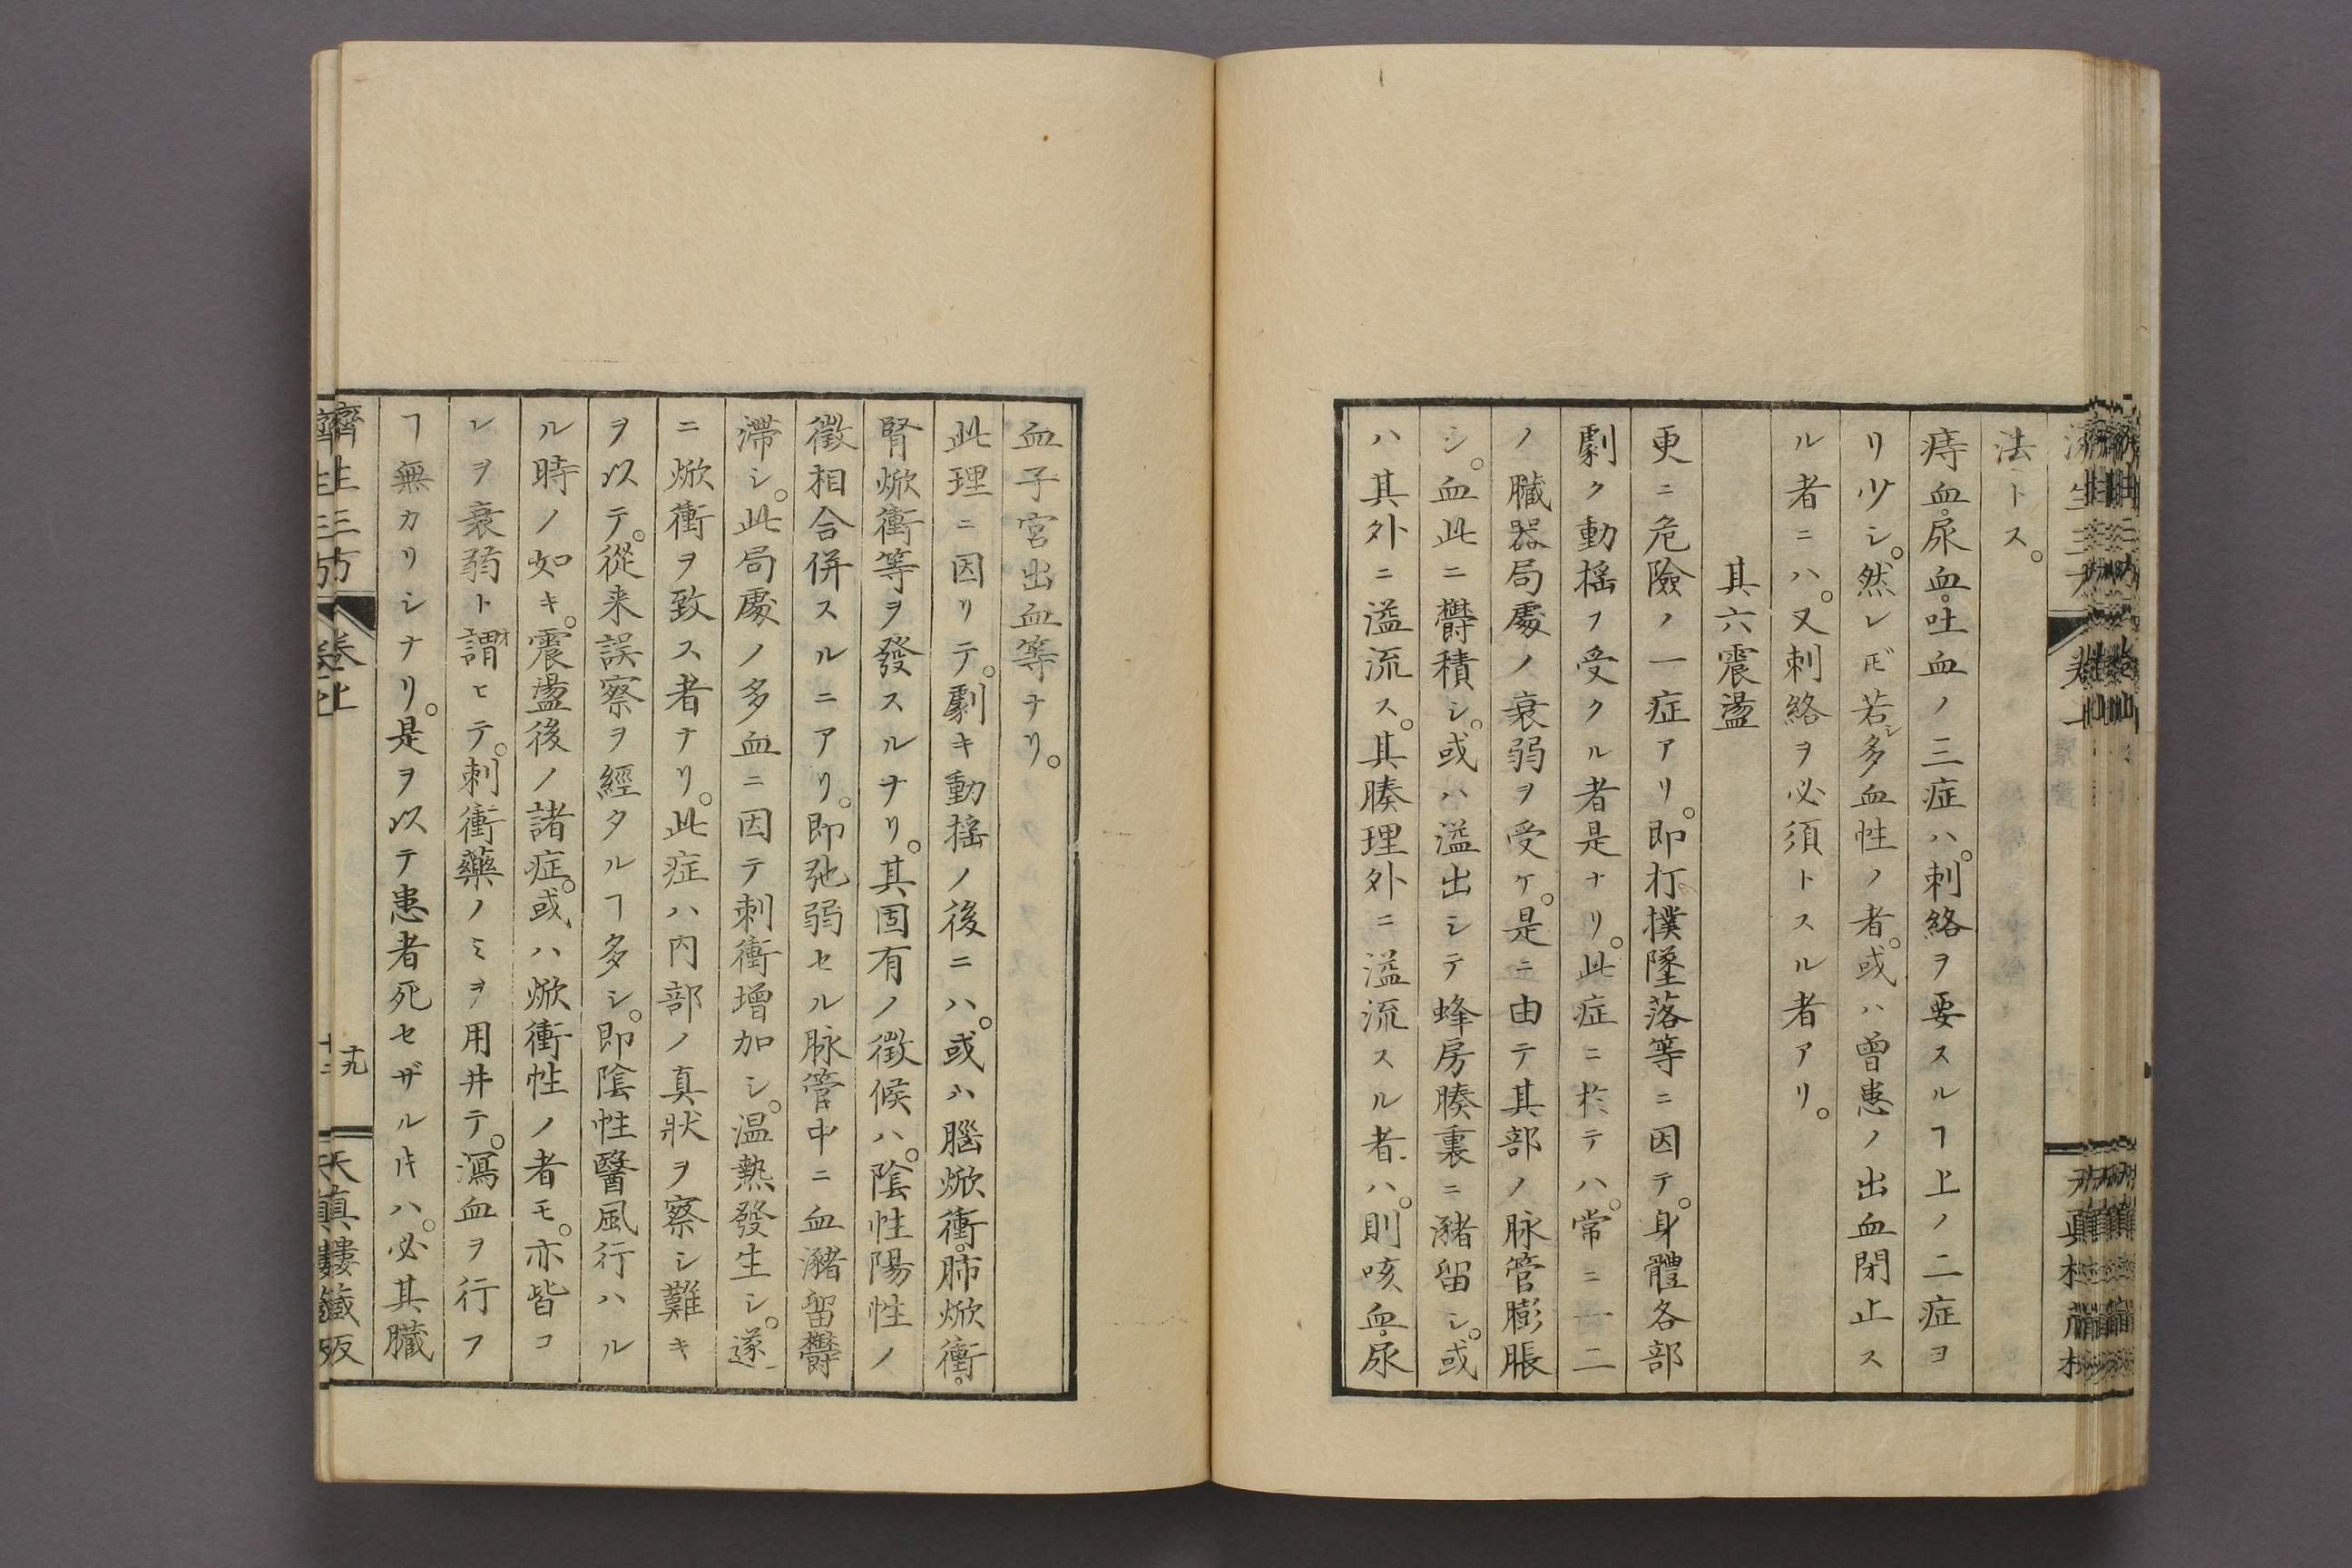 法トス。
痔血。尿血。吐血ノ三症ハ。刺絡ヲ要スルヿ上ノ二症ヨ
リ少シ。然レ𪜈若シ多血性ノ者。或ハ曽患ノ出血閉止ス
ル者ニハ。又刺絡ヲ必須トスル者アリ。
其六震盪
更ニ危險ノ一症アリ。即打撲墜落等ニ因テ。身體各部
劇ク動揺ヲ受クル者是ナリ。此症ニ於テハ。常ニ一二
ノ臓器局處ノ衰弱ヲ受ケ。是ニ由テ其部ノ脉管膨脹
シ。血此ニ欝積シ。或ハ溢出シテ蜂房腠裏ニ瀦留シ。或
ハ其外ニ溢流ス。其腠理外ニ溢流スル者ハ。則咳血。尿
血子宮出血等ナリ。
此理ニ因リテ。劇キ動揺ノ後ニハ。或ハ腦焮衝。肺焮衝。
腎焮衝等ヲ發スルナリ。其固有ノ徴候ハ。陰性陽性ノ
徴相合併スルニアリ。即弛弱セル脉管中ニ血瀦留欝
滞シ。此局處ノ多血ニ因テ刺衝增加シ。温熱發生シ。遂
ニ焮衝ヲ致ス者ナリ。此症ハ内部ノ真狀ヲ察シ難キ
ヲ以テ。從来誤察ヲ經タルヿ多シ。即陰性醫風行ハル
ル時ノ如キ。震盪後ノ諸症。或ハ焮衝性ノ者モ。亦皆コ
レヲ衰弱ト謂ヒテ。刺衝藥ノミヲ用井テ。瀉血ヲ行フ
ヿ無カリシナリ。是ヲ以テ患者死セザル𪜈ハ。必其臓
濟生三方 卷上 十九 天真樓藏版